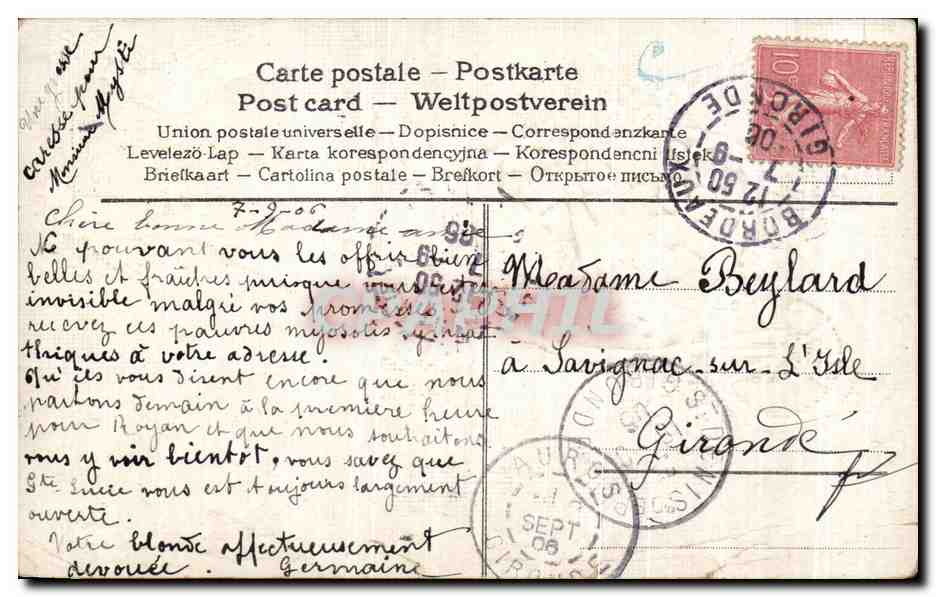 Une grosse
caresse pour
Monsieur Myste
Carte postale – Postkarte
Post card – Weltpostverein
Union postale universelle – Dopisnice – Correspondenzkarte
Levelezö-Lap – Karta korespondencyjna – Korespondencni listek
Briefkaart – Cartolina postale – Brefkort – Открытое письмо
10
BORDEAUX
12 50
7 -9
06
GIRONDE
7-9-06
Chère bonne Madame amie
Ne pouvant vous les offrir bien
belles et fraîches puisque vous restez
invisible malgré vos promesses
recevez ces pauvres myosotis sympa
thiques à votre adresse.
Qu'ils vous disent encore que nous
partons demain à la première heure
pour Royan et que nous souhaitons
vous y voir bientôt, vous savez que
Ste Luce vous est toujours largement
ouverte.
Votre blonde affectueusement
dévouée. Germaine
Madame Beylard
à Savignac-sur-L'Isle
Gironde
CAPHIL
SEPT
06